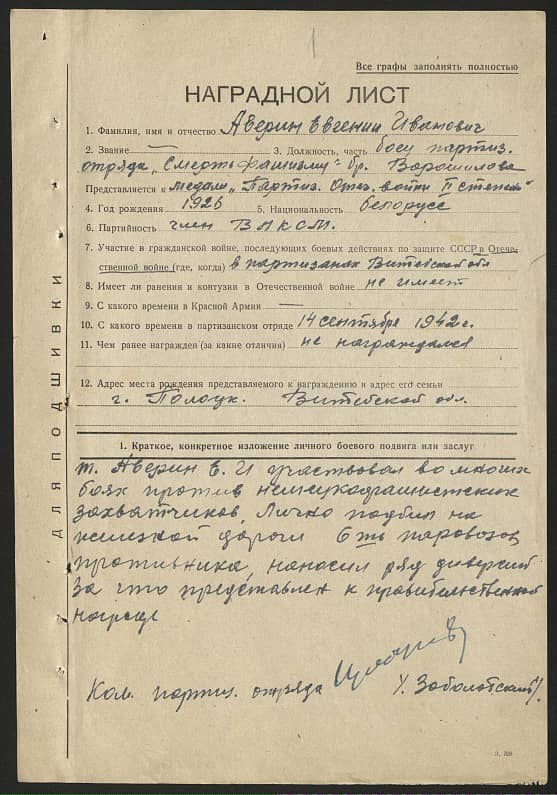 1
Все графы заполнять полностью
НАГРАДНОЙ ЛИСТ
1. Фамилия, имя и отчество Аверин Евгений Иванович
2. Звание — 3. Должность, часть боец партиз.
отряда „Смерть фашизму“ бр. Ворошилова
Представляется к медали „Партиз. Отеч. войны II степени“
4. Год рождения 1926 5. Национальность белорусс
6. Партийность член ВЛКСМ.
7. Участие в гражданской войне, последующих боевых действиях по защите СССР в Отече-
ственной войне (где, когда) в партизанах Витебской обл
8. Имеет ли ранения и контузии в Отечественной войне не имеет
9. С какого времени в Красной Армии —
10. С какого времени в партизанском отряде 14 сентября 1942 г.
11. Чем ранее награжден (за какие отличия) не награждался
12. Адрес места рождения представляемого к награждению и адрес его семьи
г. Полоцк. Витебской обл.
1. Краткое, конкретное изложение личного боевого подвига или заслуг
т. Аверин Е. И участвовал во многих
боях против немецкофашистских
захватчиков, Лично подбил на
железной дороги 6ть паровозов
противника, наносил ряд диверсий
За что представлен к правительственной
награде
Ком. партиз. отряда /. Заболотский/.
ДЛЯ ПОДШИВКИ